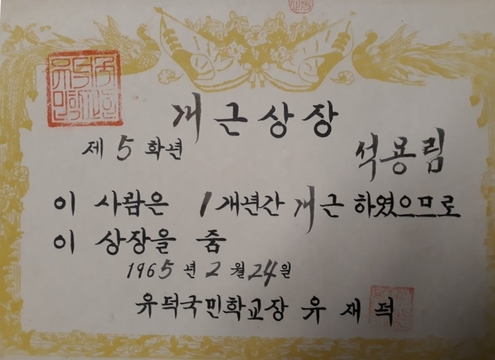 개근상장
제 5 학년
석용림
이 사람은 1개년간 개근 하였으므로
이 상장을 줌
1965 년 2 월 24 일
유덕국민학교장 유재적